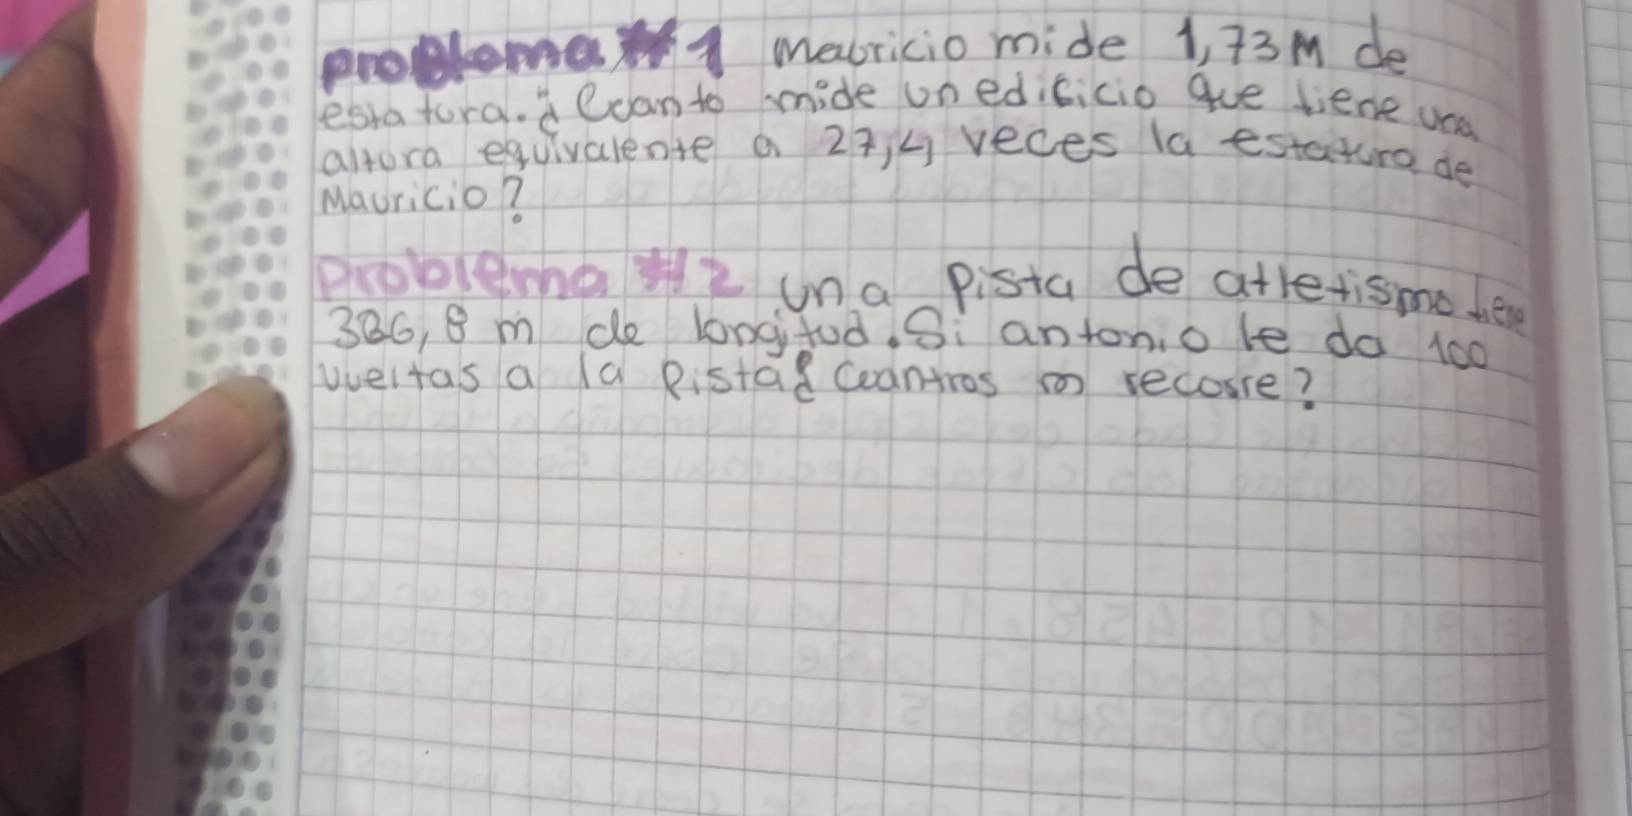 problema #1 Mauricio mide 1,73 M de
estatura. ¿Cuanto mide un edificio que tiene una
altura equivalente a 27,4 veces la estatura de
Mauricio?
Problema #2 una pista de atletismo tiene
386,8 m de longitud. Si antonio le da 100
vueltas a la pista ¿Cuantros m recorre?